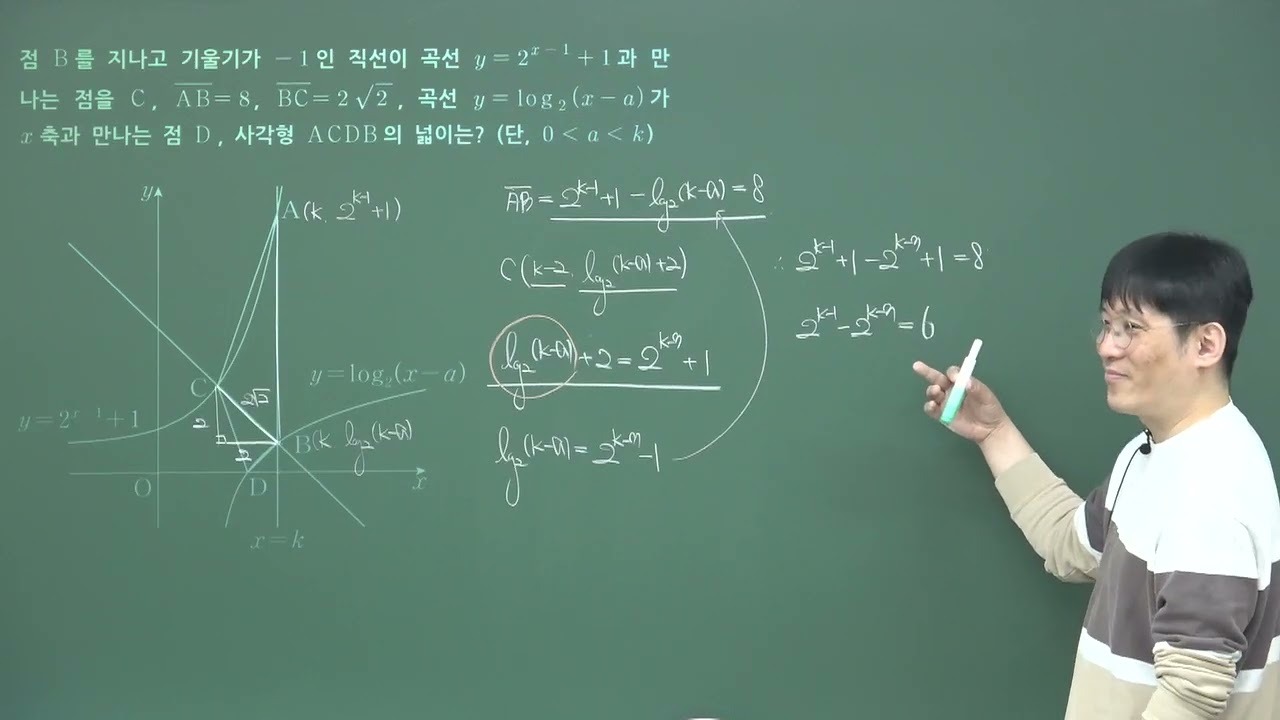 점 B를 지나고 기울기가 −1인 직선이 곡선 y = 2^{x−1} + 1과 만
나는 점을 C, \overline{AB} = 8, \overline{BC} = 2√2, 곡선 y = log₂(x − a)가
x축과 만나는 점 D, 사각형 ACDB의 넓이는? (단, 0 < a < k)
y
A(k, 2^{k-1}+1)
C
2√2
2
2
y = log₂(x − a)
y = 2^{x−1} + 1
B(k log₂(k-a)
O
D
x
x = k
\overline{AB} = 2^{k-1}+1 - log₂(k-a) = 8
C(k-2, log₂(k-a)+2)
log₂(k-a)+2 = 2^{k-3}+1
log₂(k-a) = 2^{k-3}-1
∴ 2^{k-1}+1-2^{k-3}+1 = 8
2^{k-1}-2^{k-3} = 6